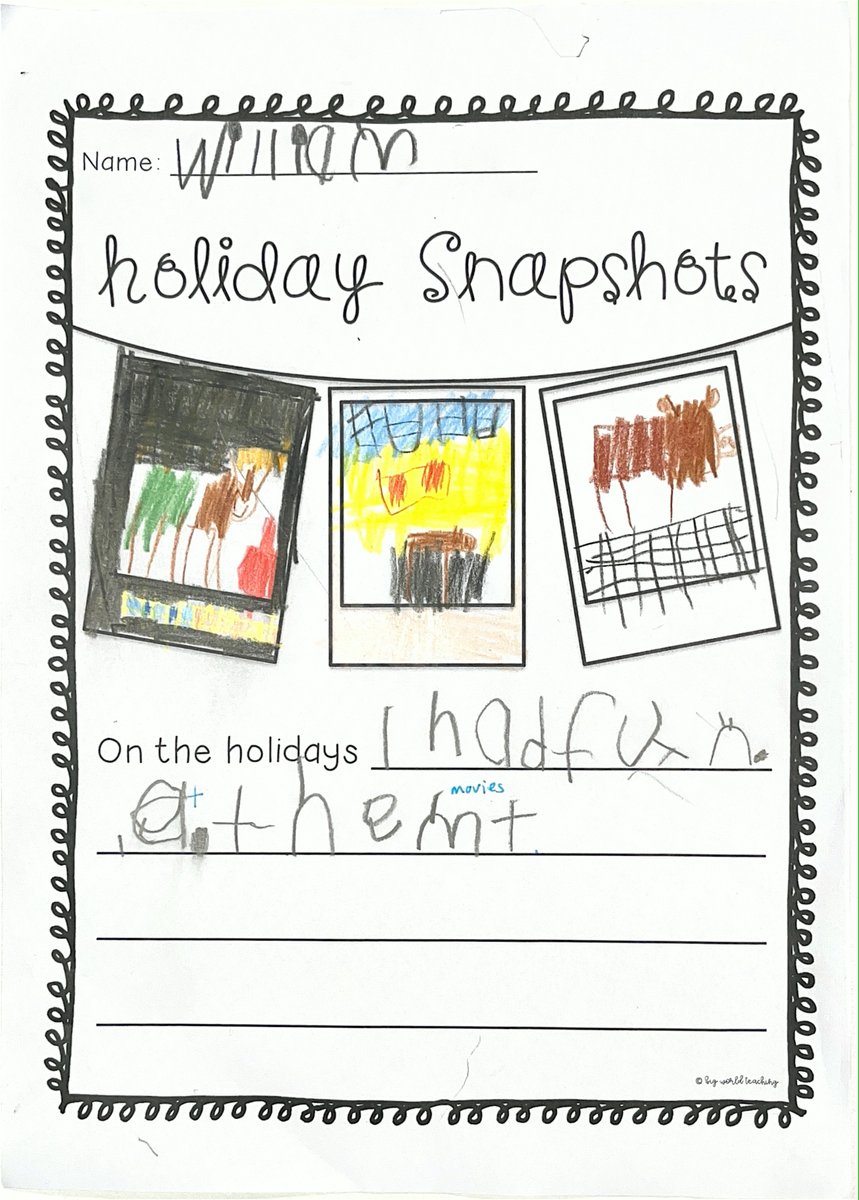 Name: William
holiday Snapshots
On the holidays I had fun.
a+ the mt movies.
© big world teaching